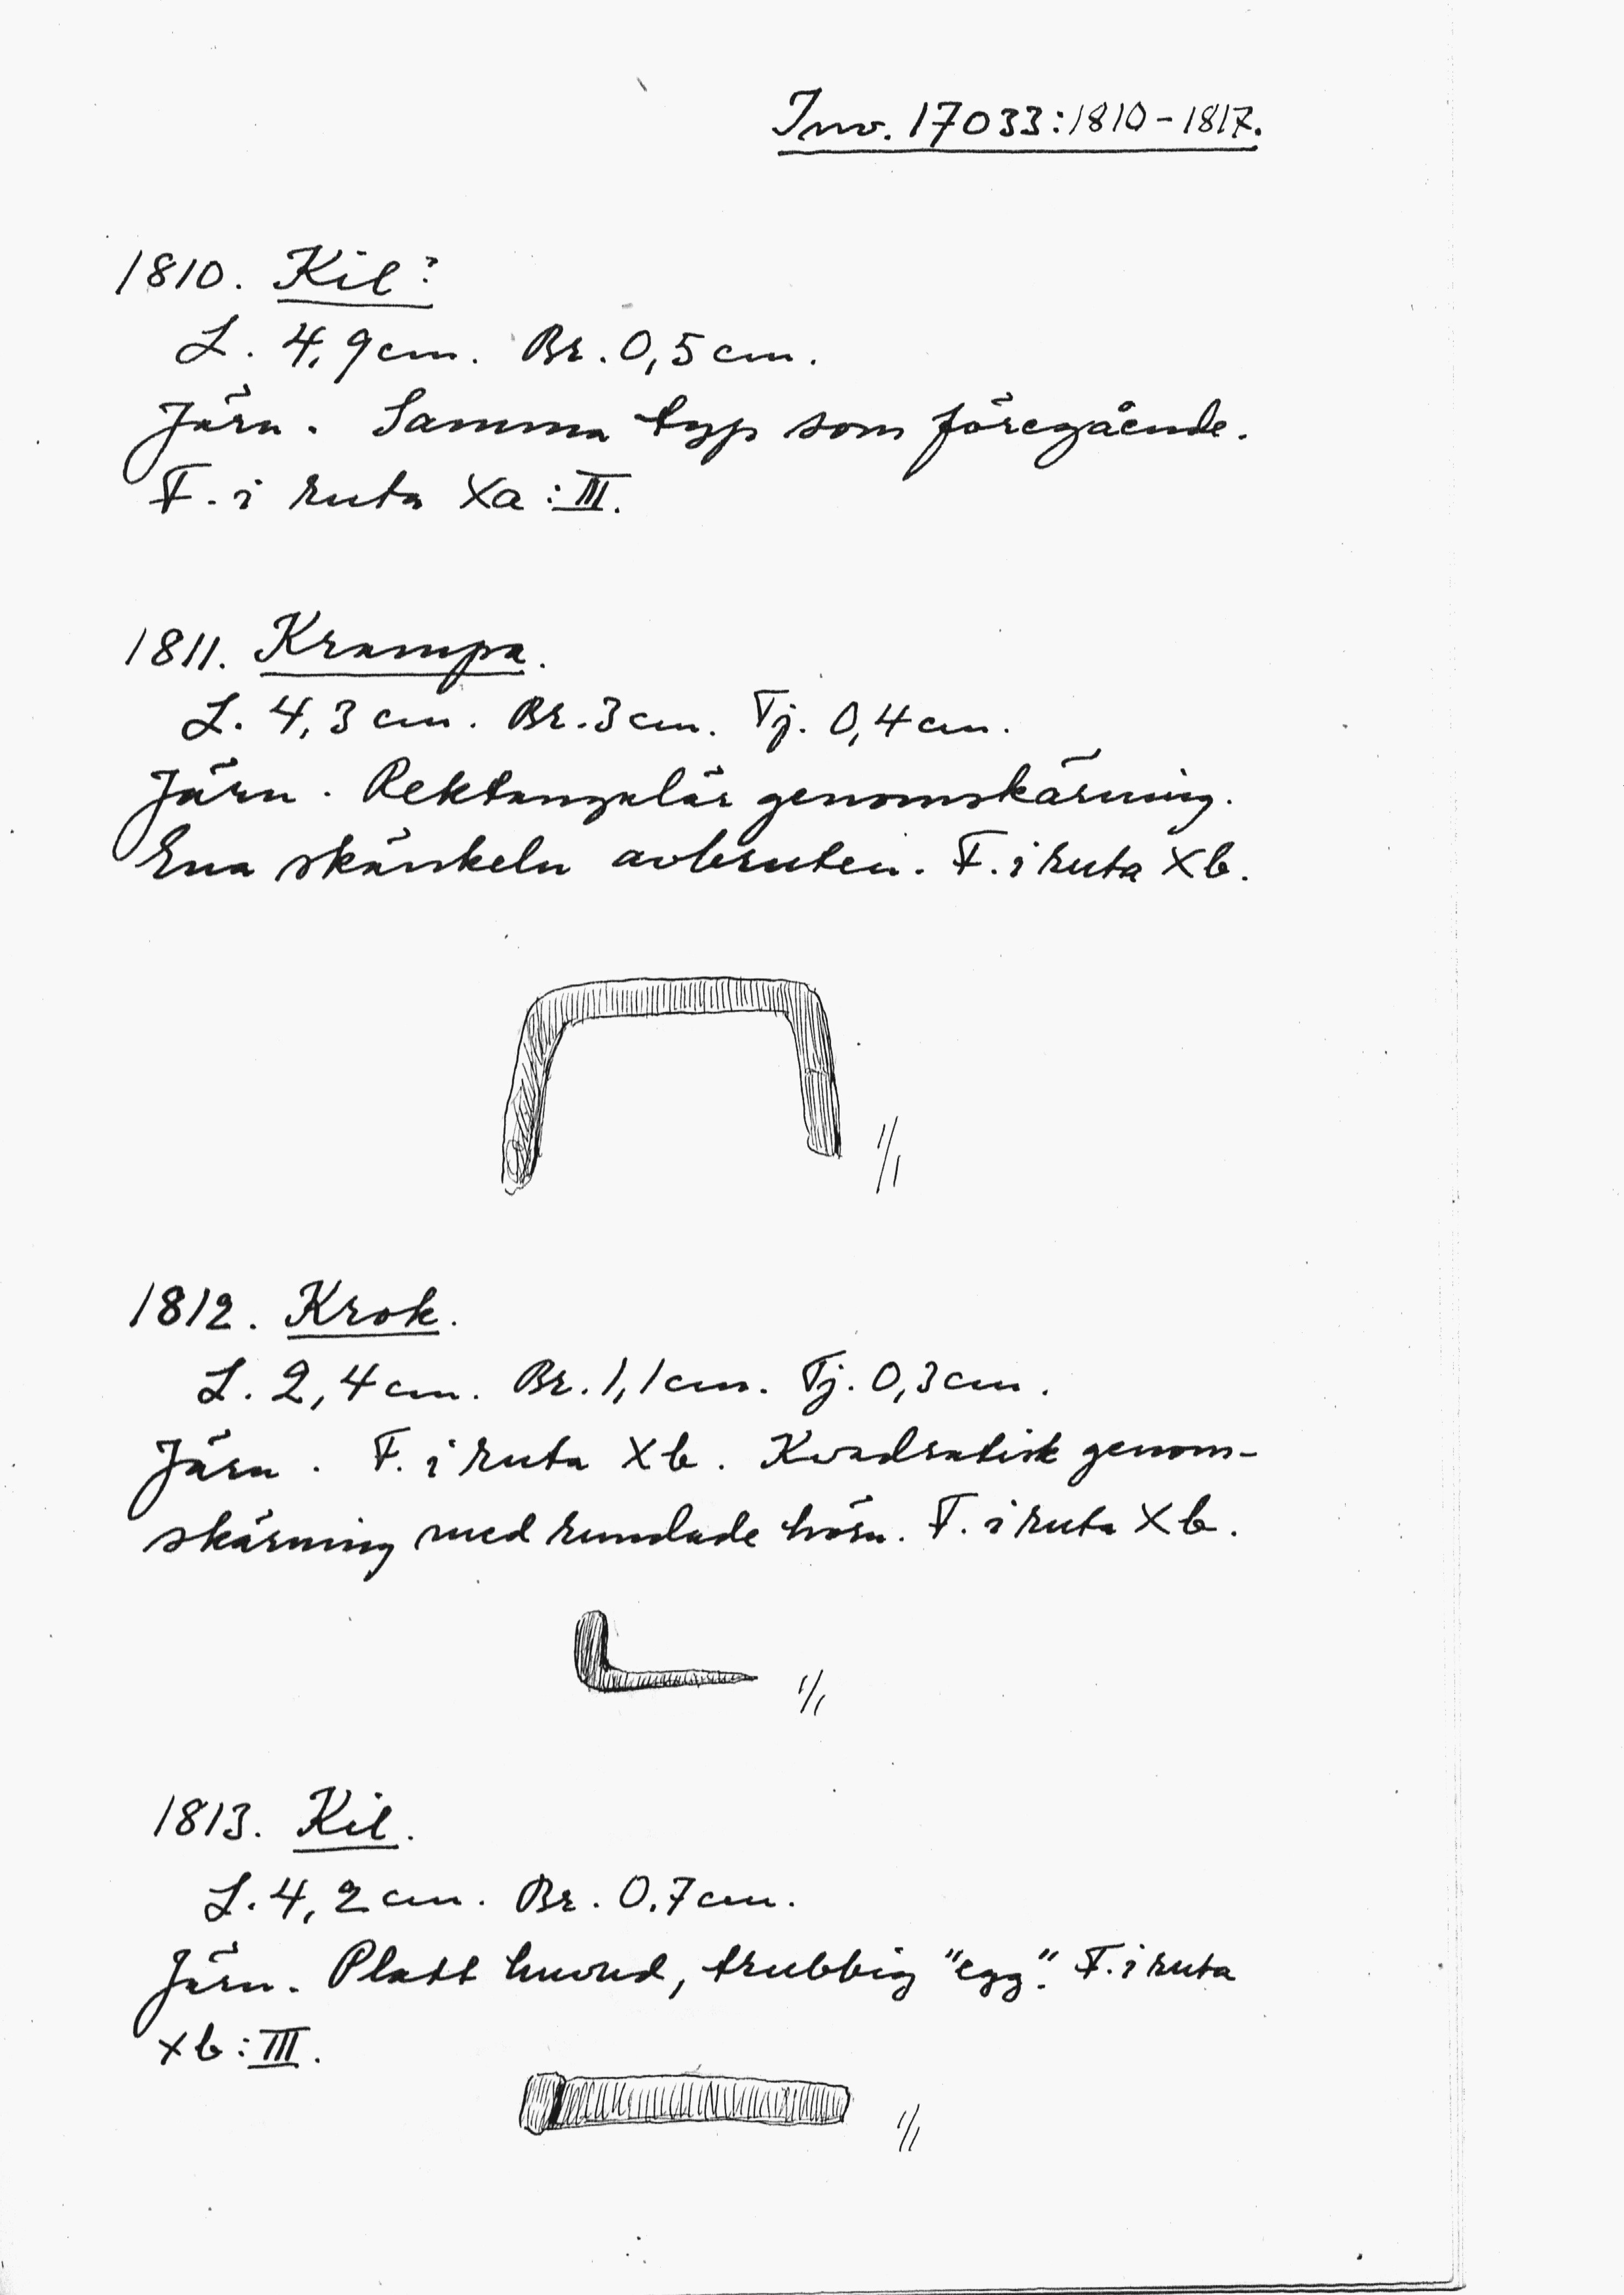 Inv. 17033:1810-1817.
1810. Kil?
L. 4,9cm. Br. 0,5cm.
Järn. Samma typ som föregående.
F. i ruta Xa:III.
1811. Krampa.
L. 4,3cm. Br. 3cm. Tj. 0,4cm.
Järn. Rektangulär genomskärning.
Ena skänkeln avbruten. F. i ruta Xb.
1/1
1812. Krok.
L. 2,4cm. Br. 1,1cm. Tj. 0,3cm.
Järn. F. i ruta Xb. Kvadratisk genom-
skärning med rundade hörn. F. i ruta Xb.
1/1
1813. Kil.
L. 4,2cm. Br. 0.7cm.
Järn. Platt huvud, trubbig "egg". F. i ruta
Xb:III.
1/1